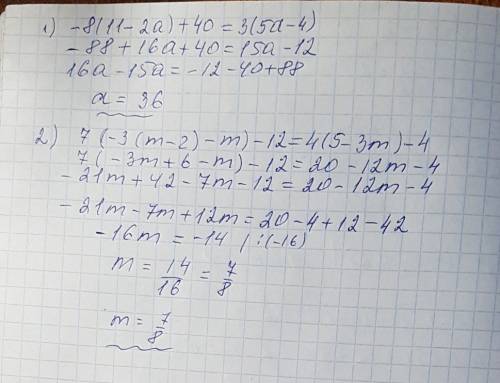 1) -8(11-2a)+40=3(5a-4)
-88+16a+40=15a-12
16a-15a=-12-40+88
a=36
2) 7(-3(m-2)-m)-12=4(5-3m)-4
7(-3m+6-m)-12=20-12m-4
-21m+42-7m-12=20-12m-4
-21m-7m+12m=20-4+12-42
-16m=-14 /:(-16)
m=14/16=7/8
m=7/8